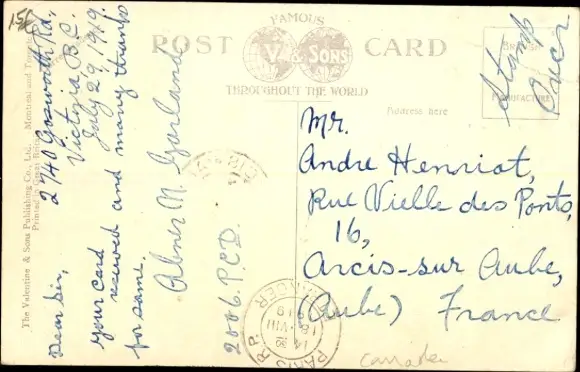 15c
FAMOUS
POST CARD
V & SONS
THROUGHOUT THE WORLD
Address here
MANUFACTURE
Stamp
Over
The Valentine & Sons Publishing Co., Ltd. Montreal and
Printed in Great
2740 Gosworth Rd.,
Victoria B.C.
July 29, 1919.
Dear Sir,
Your card
received and many thanks
for same.
Abner N. Garland
2006. P.C.D.
Mr.
Andre Henriot,
Rue Vielle des Ponts,
16,
Arcis-sur Aube,
(Aube) France
PARIS R.P.
14
VIII
19